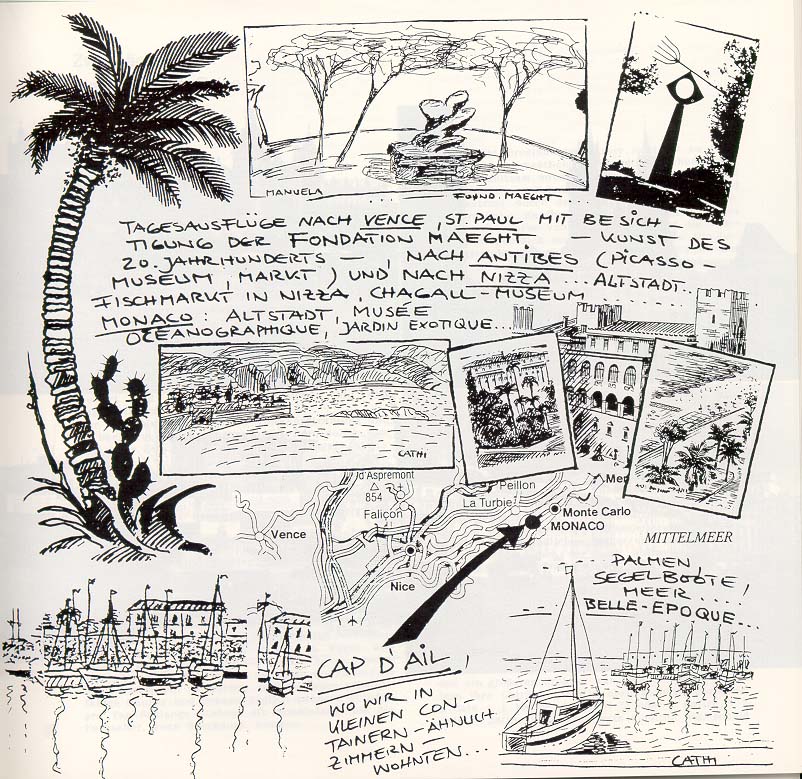 MANUELA ... FOUND. MAEGHT ...
TAGESAUSFLÜGE NACH VENCE, ST. PAUL MIT BESICH-
TIGUNG DER FONDATION MAEGHT. — KUNST DES
20. JAHRHUNDERTS —, NACH ANTIBES (PICASSO-
MUSEUM, MARKT) UND NACH NIZZA ... ALTSTADT..
FISCHMARKT IN NIZZA, CHAGALL-MUSEUM
MONACO: ALTSTADT, MUSÉE
OCÉANOGRAPHIQUE, JARDIN EXOTIQUE...
CATHI
d'Aspremont
854
Peillon
Falicon
La Turbie
Men
Monte Carlo
MONACO
Vence
Nice
MITTELMEER
PALMEN,
SEGELBOOTE,
MEER....
BELLE-EPOQUE...
CAP D'AIL,
WO WIR IN
KLEINEN CON-
TAINERN-ÄHNLICH
ZIMMERN —
WOHNTEN...
CATHI